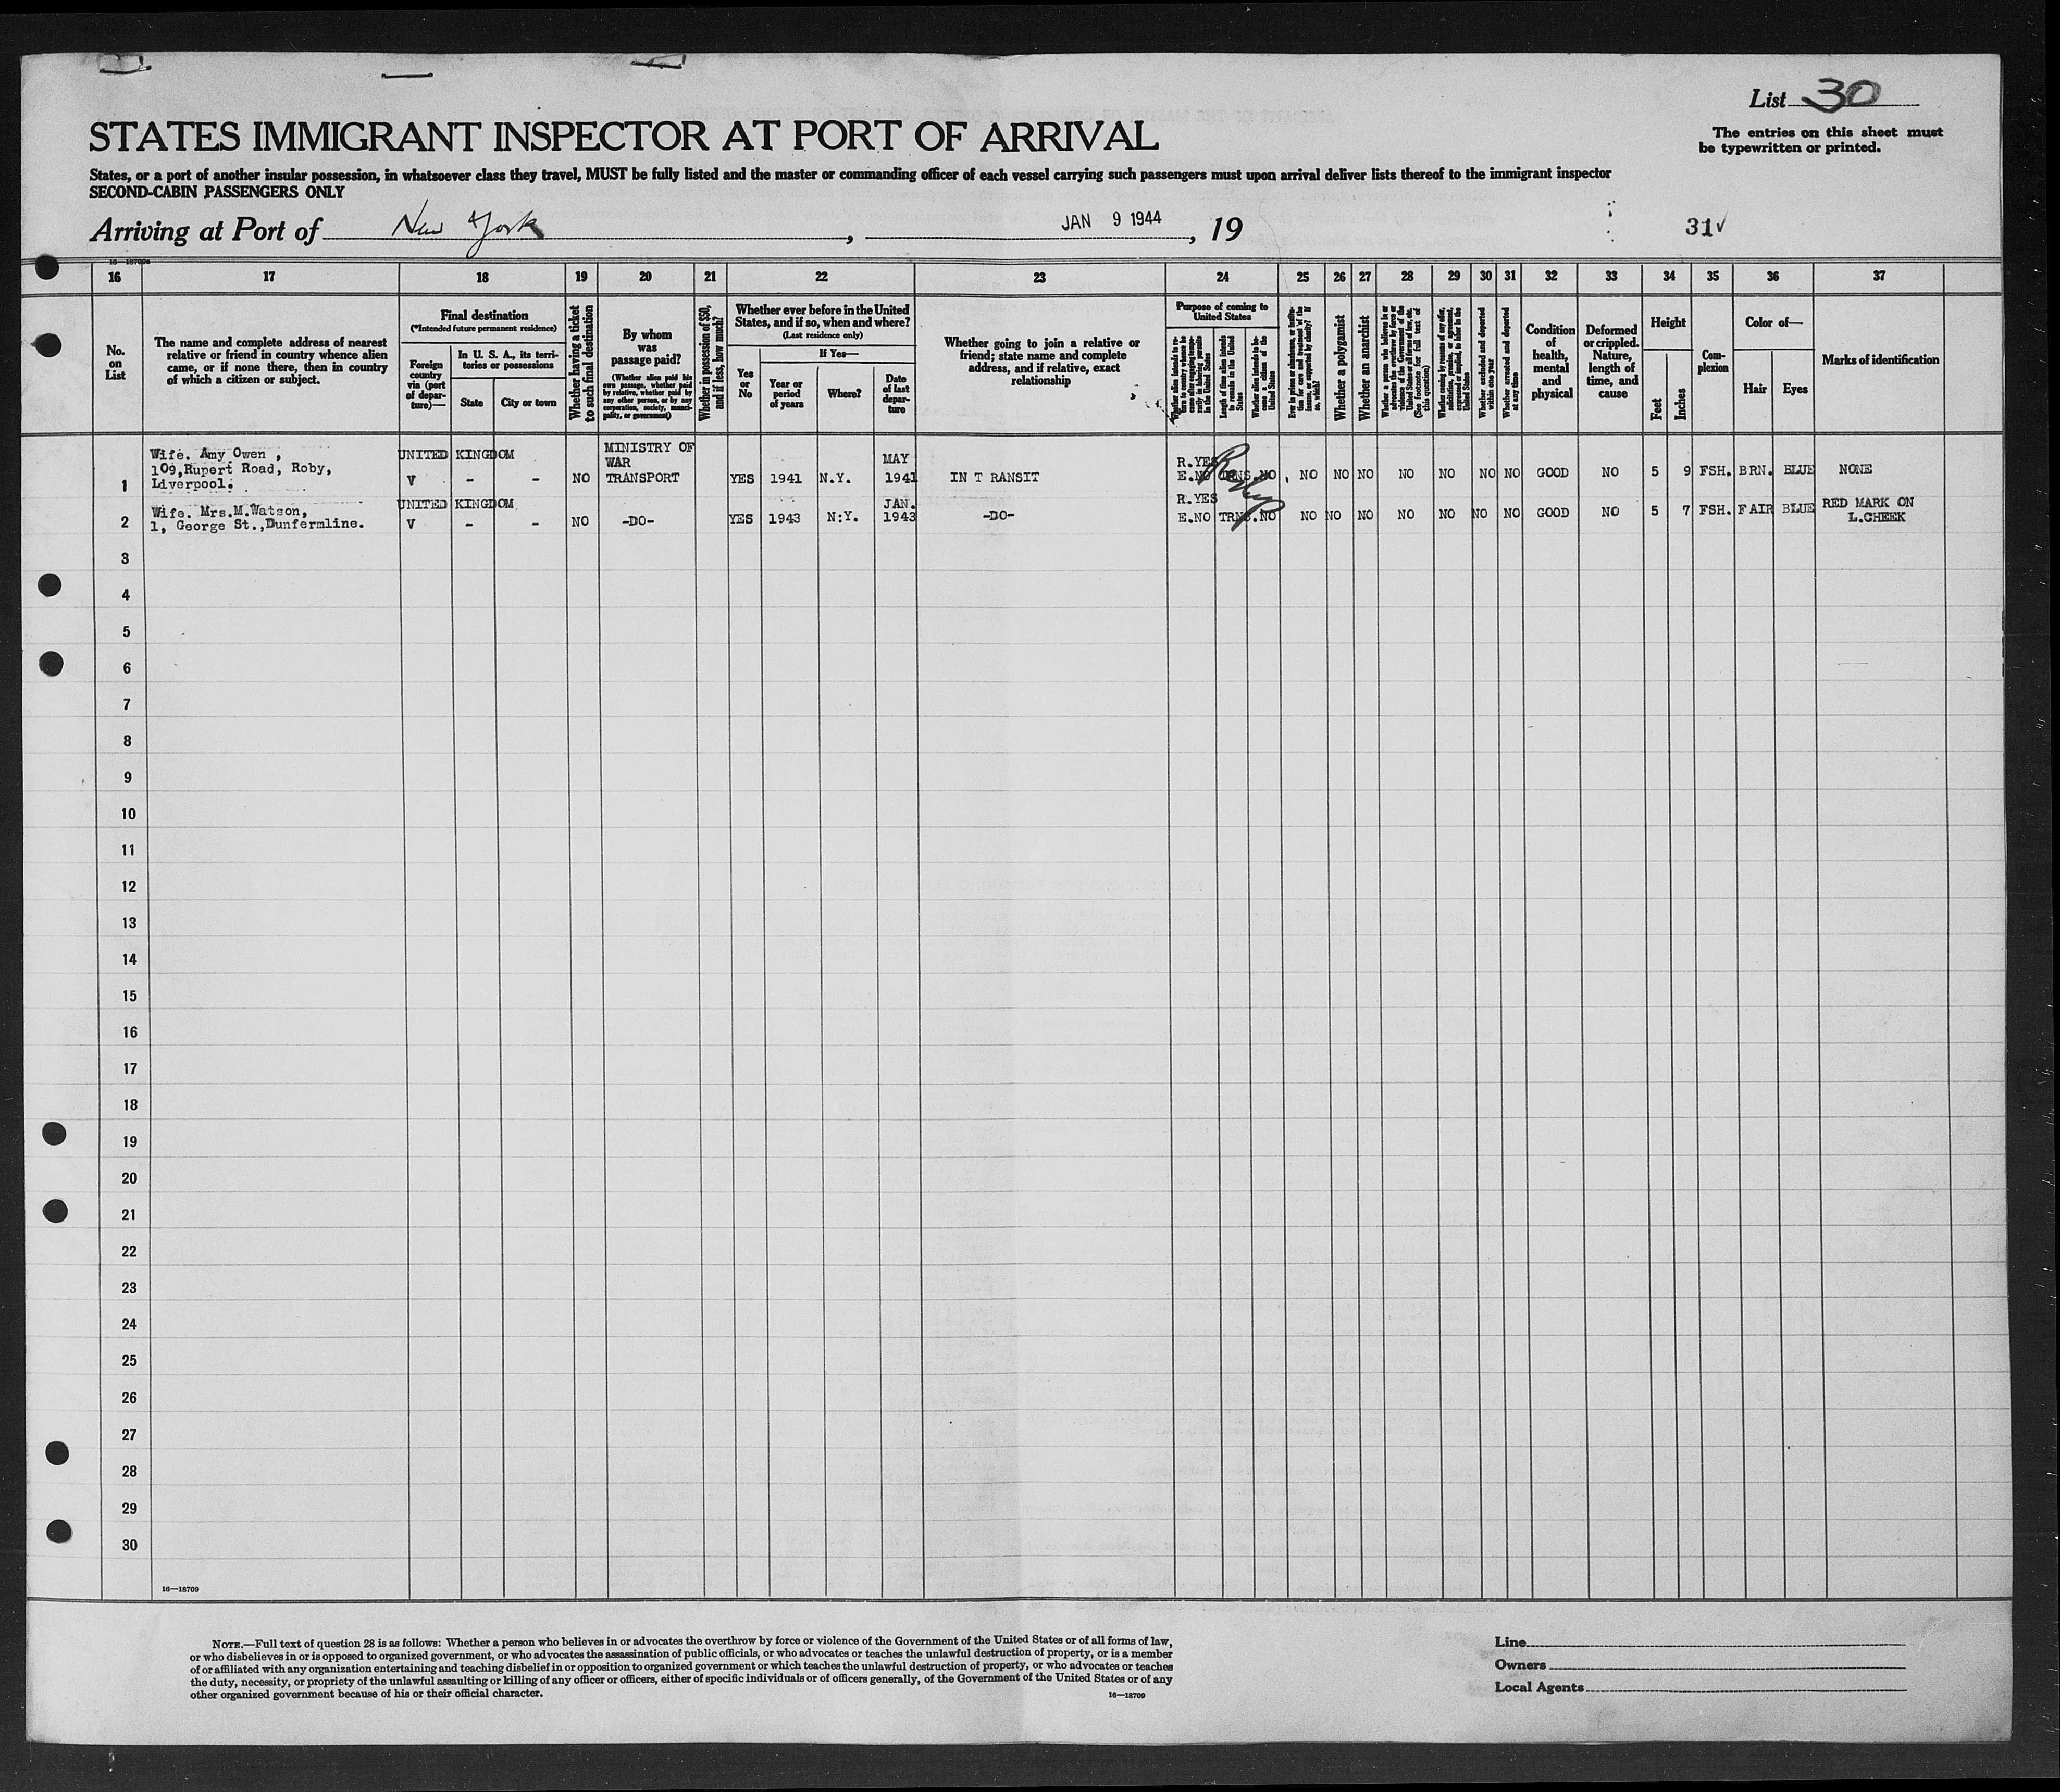 List 30
STATES IMMIGRANT INSPECTOR AT PORT OF ARRIVAL
The entries on this sheet must
be typewritten or printed.
States, or a port of another insular possession, in whatsoever class they travel, MUST be fully listed and the master or commanding officer of each vessel carrying such passengers must upon arrival deliver lists thereof to the immigrant inspector
SECOND-CABIN PASSENGERS ONLY
Arriving at Port of New York, JAN 9 1944, 19
31✓
16—18709a
16 17 18 19 20 21 22 23 24 25 26 27 28 29 30 31 32 33 34 35 36 37
No.
on
List
The name and complete address of nearest
relative or friend in country whence alien
came, or if none there, then in country
of which a citizen or subject.
Final destination
(*Intended future permanent residence)
Foreign
country
via (port
of depar-
ture)—
In U. S. A., its terri-
tories or possessions
State
City or town
Whether having a ticket
to such final destination
By whom
was
passage paid?
(Whether alien paid his
own passage, whether paid
by relative, whether paid by
any other person, or by any
corporation, society, munici-
pality, or government)
Whether in possession of $50,
and if less, how much?
Whether ever before in the United
States, and if so, when and where?
(Last residence only)
Yes
or
No
If Yes—
Year or
period
of years
Where?
Date
of last
depar-
ture
Whether going to join a relative or
friend; state name and complete
address, and if relative, exact
relationship
Purpose of coming to
United States
Length of time alien intends
to remain in the United
States
Whether alien intends to be-
come a citizen of the
United States
Whether a polygamist
Whether an anarchist
Whether excluded and deported
within one year
Whether arrested and deported
at any time
Condition
of
health,
mental
and
physical
Deformed
or crippled.
Nature,
length of
time, and
cause
Height
Feet
Inches
Com-
plexion
Color of—
Hair
Eyes
Marks of identification
1 Wife. Amy Owen ,
109,Rupert Road, Roby,
Liverpool.
UNITED KINGDOM
V - - NO
MINISTRY OF
WAR
TRANSPORT
YES 1941 N.Y. MAY
1941
IN T RANSIT
R.YES
E.NO TRNS.NO NO NO NO NO NO NO NO GOOD NO 5 9 FSH. BRN. BLUE NONE
2 Wife. Mrs.M.Watson,
1, George St.,Dunfermline.
UNITED KINGDOM
V - - NO -DO- YES 1943 N.Y. JAN.
1943
-DO-
R.YES
E.NO TRNS.NO NO NO NO NO NO NO NO GOOD NO 5 7 FSH. FAIR BLUE RED MARK ON
L.CHEEK
3
4
5
6
7
8
9
10
11
12
13
14
15
16
17
18
19
20
21
22
23
24
25
26
27
28
29
30
16—18709
NOTE.—Full text of question 28 is as follows: Whether a person who believes in or advocates the overthrow by force or violence of the Government of the United States or of all forms of law,
or who disbelieves in or is opposed to organized government, or who advocates the assassination of public officials, or who advocates or teaches the unlawful destruction of property, or is a member
of or affiliated with any organization entertaining and teaching disbelief in or opposition to organized government or which teaches the unlawful destruction of property, or who advocates or teaches
the duty, necessity, or propriety of the unlawful assaulting or killing of any officer or officers, either of specific individuals or of officers generally, of the Government of the United States or of any
other organized government because of his or their official character.
16—18709
Line
Owners
Local Agents